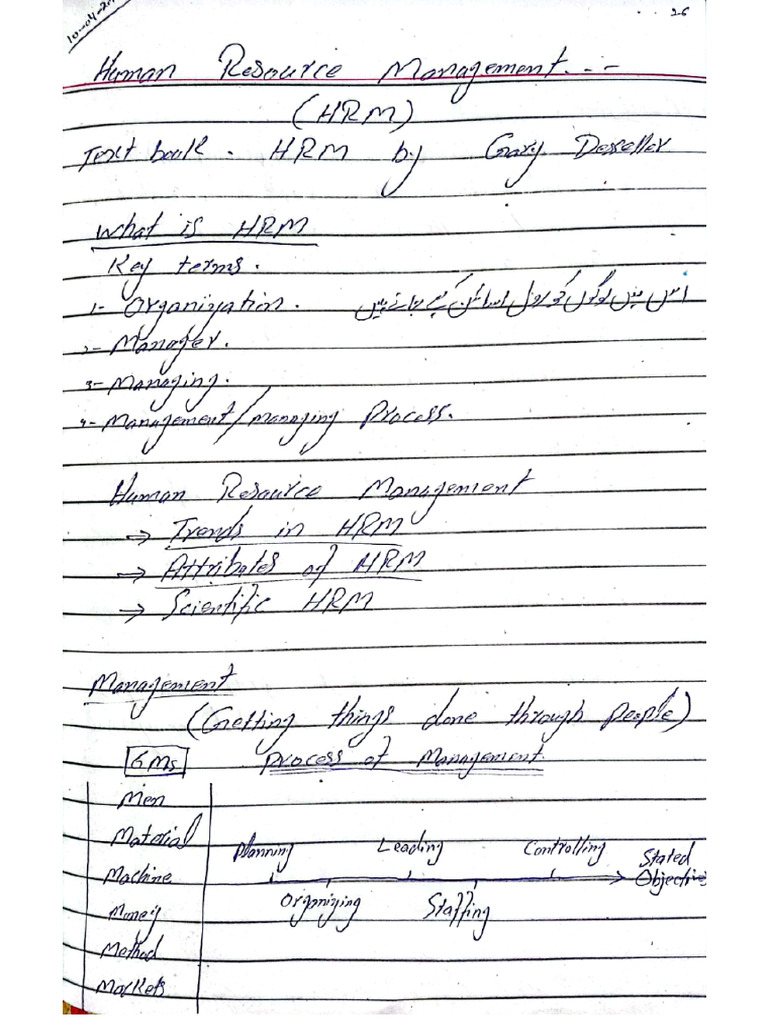 26
Human Resource Management...-
(HRM)
Text book. HRM by Gary Desseller
What is HRM
Key terms.
1- Organization. اس میں لوگوں کو رول اسائن کیے جاتے ہیں
2- Manager.
3- Managing.
4- Management/managing Process.
Human Resource Management
→ Trends in HRM
→ Attributes of HRM
→ Scientific HRM
Management
(Getting things done through people)
6Ms Process of Management
Men
Material
Planning Leading Controlling Stated
Machine Objective
Money Organizing Staffing
Method
Markets